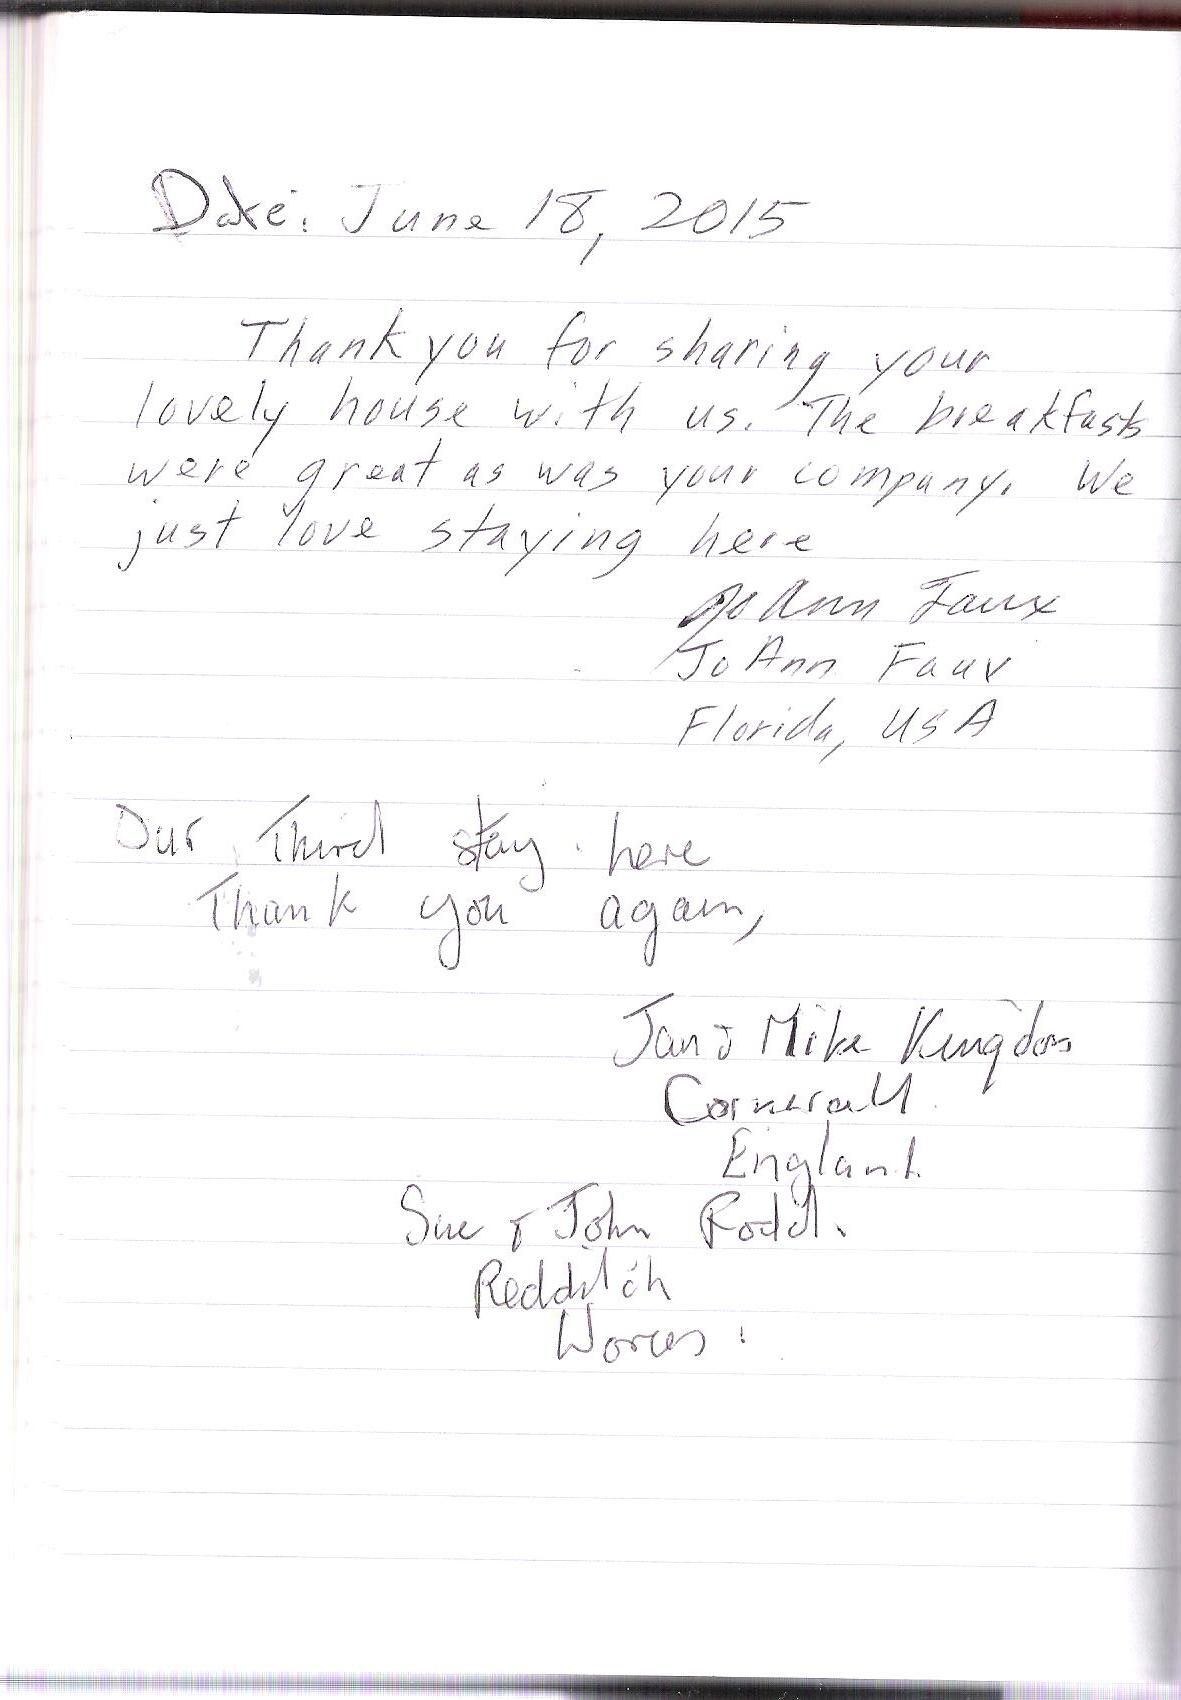 Date: June 18, 2015
Thank you for sharing your
lovely house with us. The breakfasts
were great as was your company. We
just love staying here
JoAnn Faux
JoAnn Faux
Florida, USA
Our Third stay here
Thank you again,
Jan & Mike Kingdon
Cornwall
England.
Sue & John Rodd.
Redditch
Worcs.